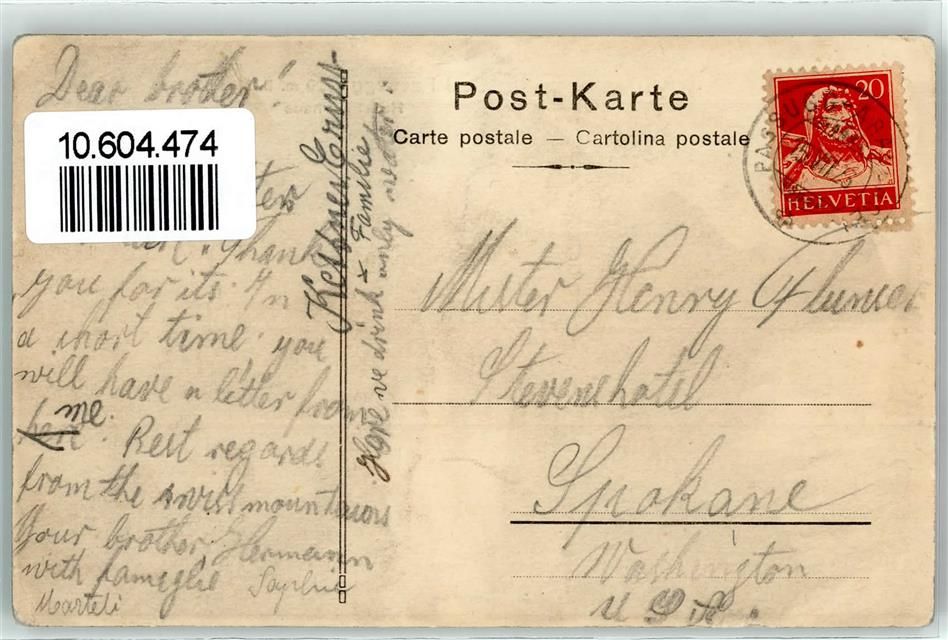 Dear brother!
10.604.474
Thank
you for its. In
a short time. you
will have a letter from
me.
Best regards
from the swiss mountains
Your brother Hermann
with fameglie Sophie
Marteli
Familie
Here we drink only
Post-Karte
Carte postale — Cartolina postale
20
HELVETIA
Mister Henry
Stevenshotel
Spokane
Washington
U.S.A.